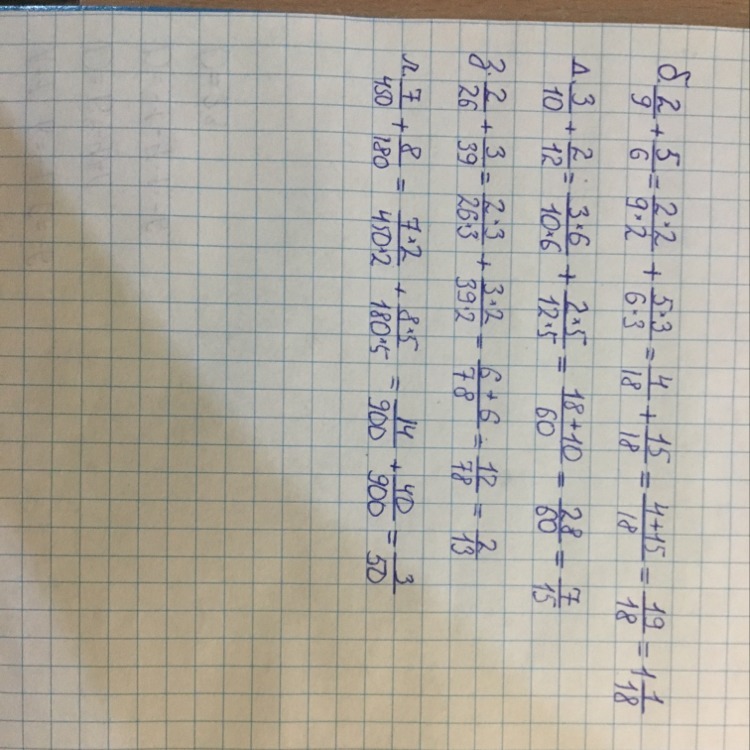 б. 2/9 + 5/6 = 2·2/9·2 + 5·3/6·3 = 4/18 + 15/18 = 4+15/18 = 19/18 = 1 1/18
д. 3/10 + 2/12 = 3·6/10·6 + 2·5/12·5 = 18+10/60 = 28/60 = 7/15
з. 2/26 + 3/39 = 2·3/26·3 + 3·2/39·2 = 6+6/78 = 12/78 = 2/13
л. 7/450 + 8/180 = 7·2/450·2 + 8·5/180·5 = 14/900 + 40/900 = 3/50